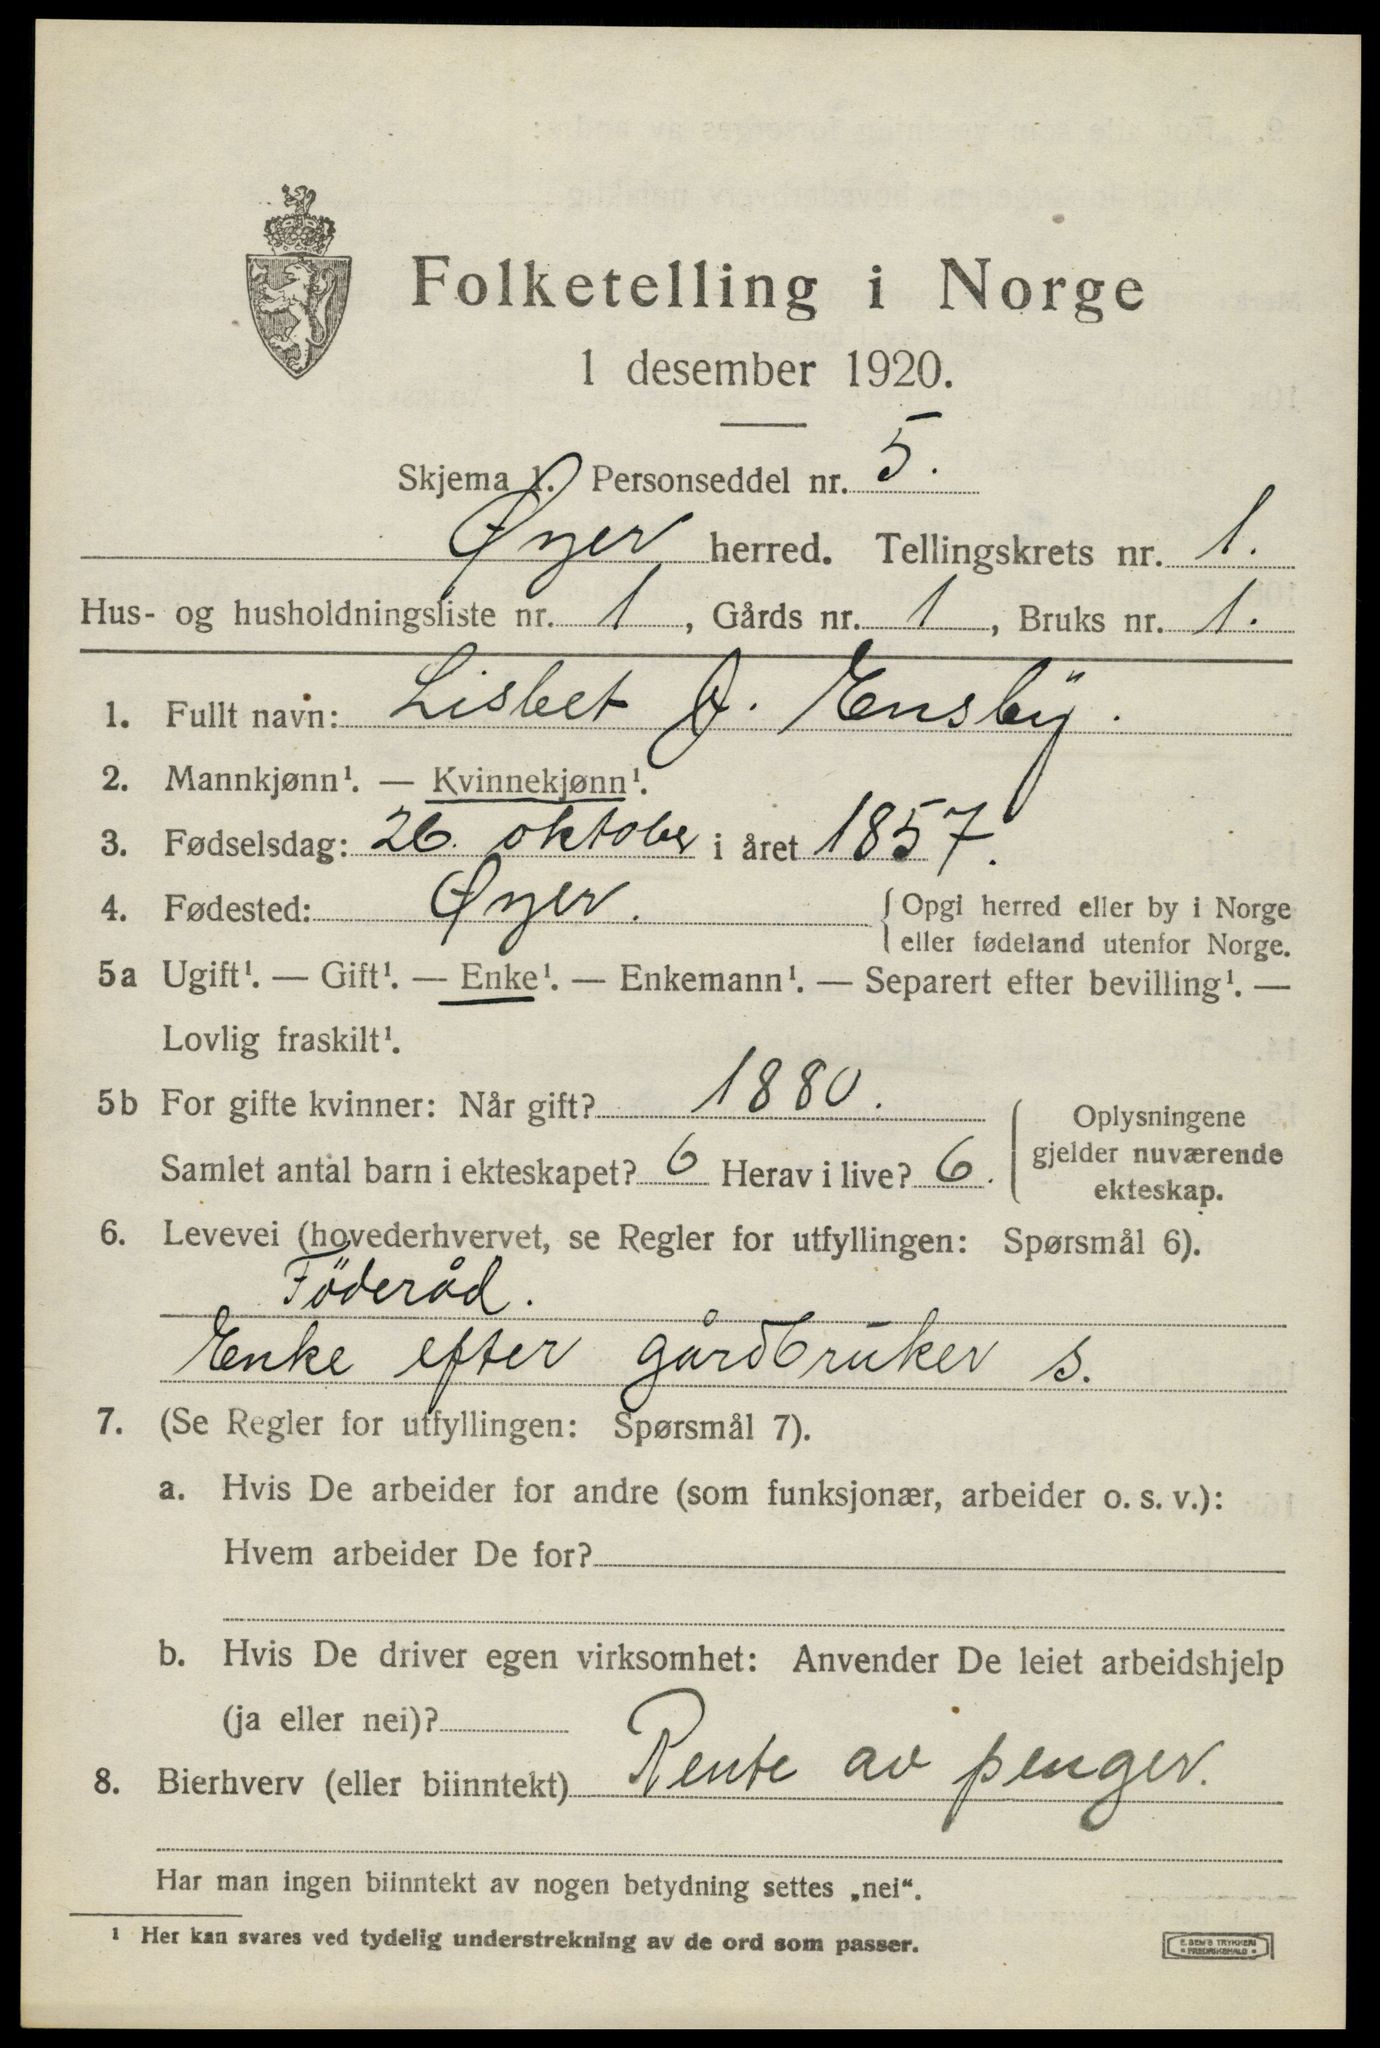 Folketelling i Norge
1 desember 1920.
Skjema 1. Personseddel nr. 5.
Øyer herred. Tellingskrets nr. 1.
Hus- og husholdningsliste nr. 1, Gårds nr. 1, Bruks nr. 1.
1. Fullt navn: Lisbet O. Ensby.
2. Mannkjønn¹. — Kvinnekjønn¹.
3. Fødselsdag: 26. oktober i året 1857.
4. Fødested: Øyer. { Opgi herred eller by i Norge
eller fødeland utenfor Norge.
5a Ugift¹. — Gift¹. — Enke¹. — Enkemann¹. — Separert efter bevilling¹. —
Lovlig fraskilt¹.
5b For gifte kvinner: Når gift? 1880.
Samlet antal barn i ekteskapet? 6 Herav i live? 6.
Oplysningene
gjelder nuværende
ekteskap.
6. Levevei (hovederhvervet, se Regler for utfyllingen: Spørsmål 6).
Föderåd.
Enke efter gårdbruker s.
7. (Se Regler for utfyllingen: Spørsmål 7).
a. Hvis De arbeider for andre (som funksjonær, arbeider o. s. v.):
Hvem arbeider De for?
b. Hvis De driver egen virksomhet: Anvender De leiet arbeidshjelp
(ja eller nei)?
8. Bierhverv (eller biinntekt) Rente av penger.
Har man ingen biinntekt av nogen betydning settes „nei“.
¹ Her kan svares ved tydelig understrekning av de ord som passer.
E. SEM'S TRYKKERI
FREDRIKSHALD